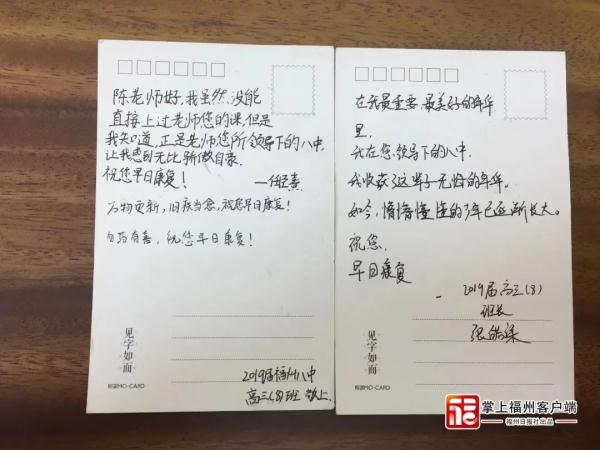 陈老师好,我虽然没能
直接上过老师您的课,但是
我知道,正是老师您所领导下的八中
让我感到无比骄傲自豪
祝您早日康复!
万物更新,旧疾当愈,祝您早日康复!
勿药有喜,祝您早日康复!
见字如面
MO-CARD
2019届福州八中
高三(8)班 敬上.
在我最重要、最美好的年华
里,
我在您领导下的八中,
我收获了这辈子无悔的年华。
如今,懵懵懂懂的少年已逐渐长大。
祝您
早日康复
2019届高三(8)
班长
见字如面
MO-CARD
掌上福州客户端
福州日报社出品